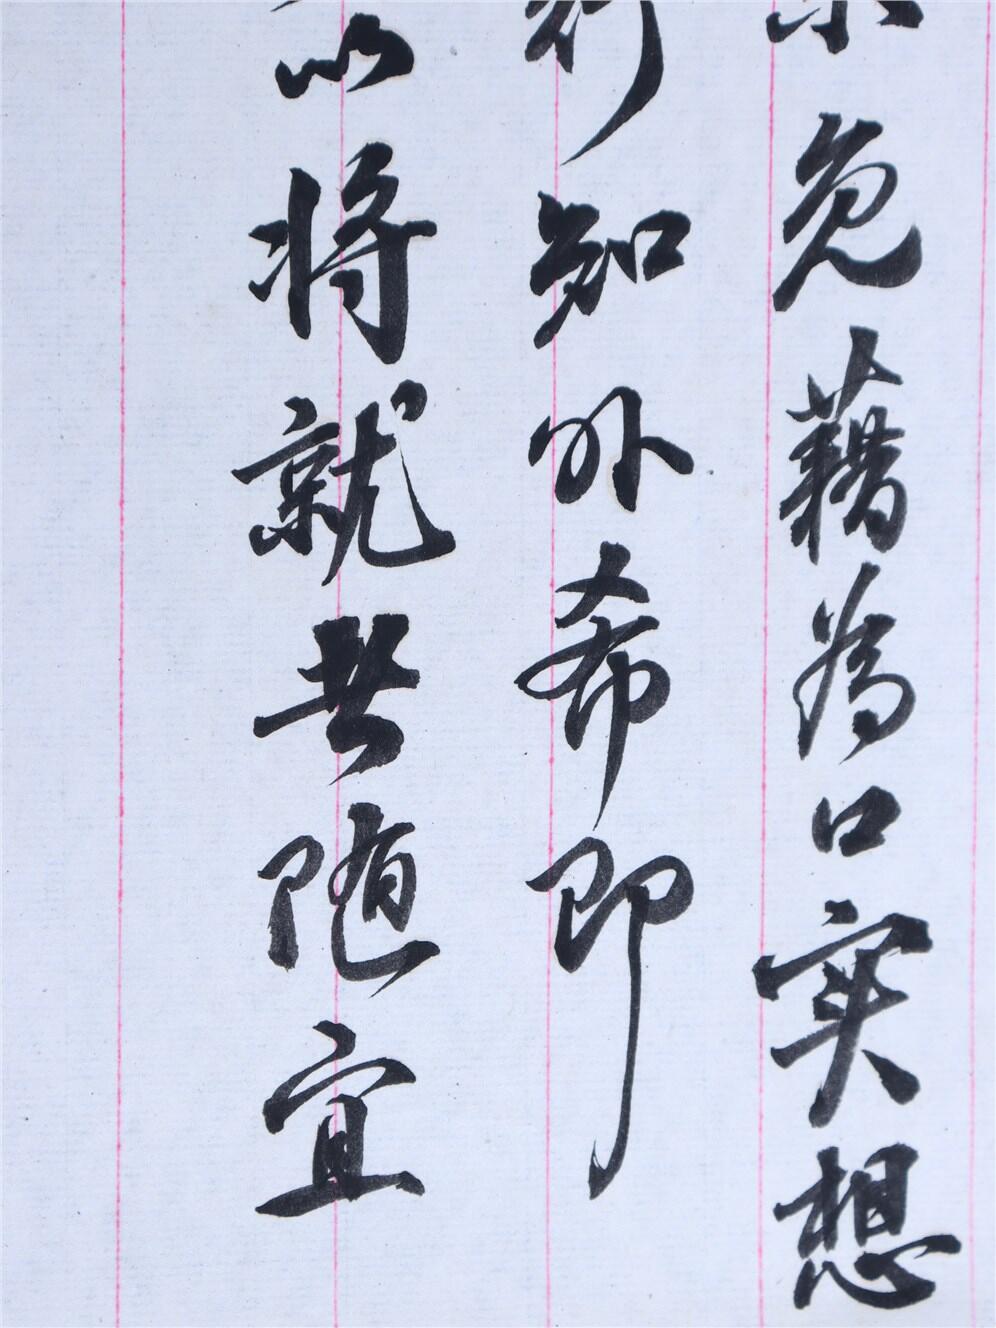 免藉为口实想
知外希即
以将就共随宜